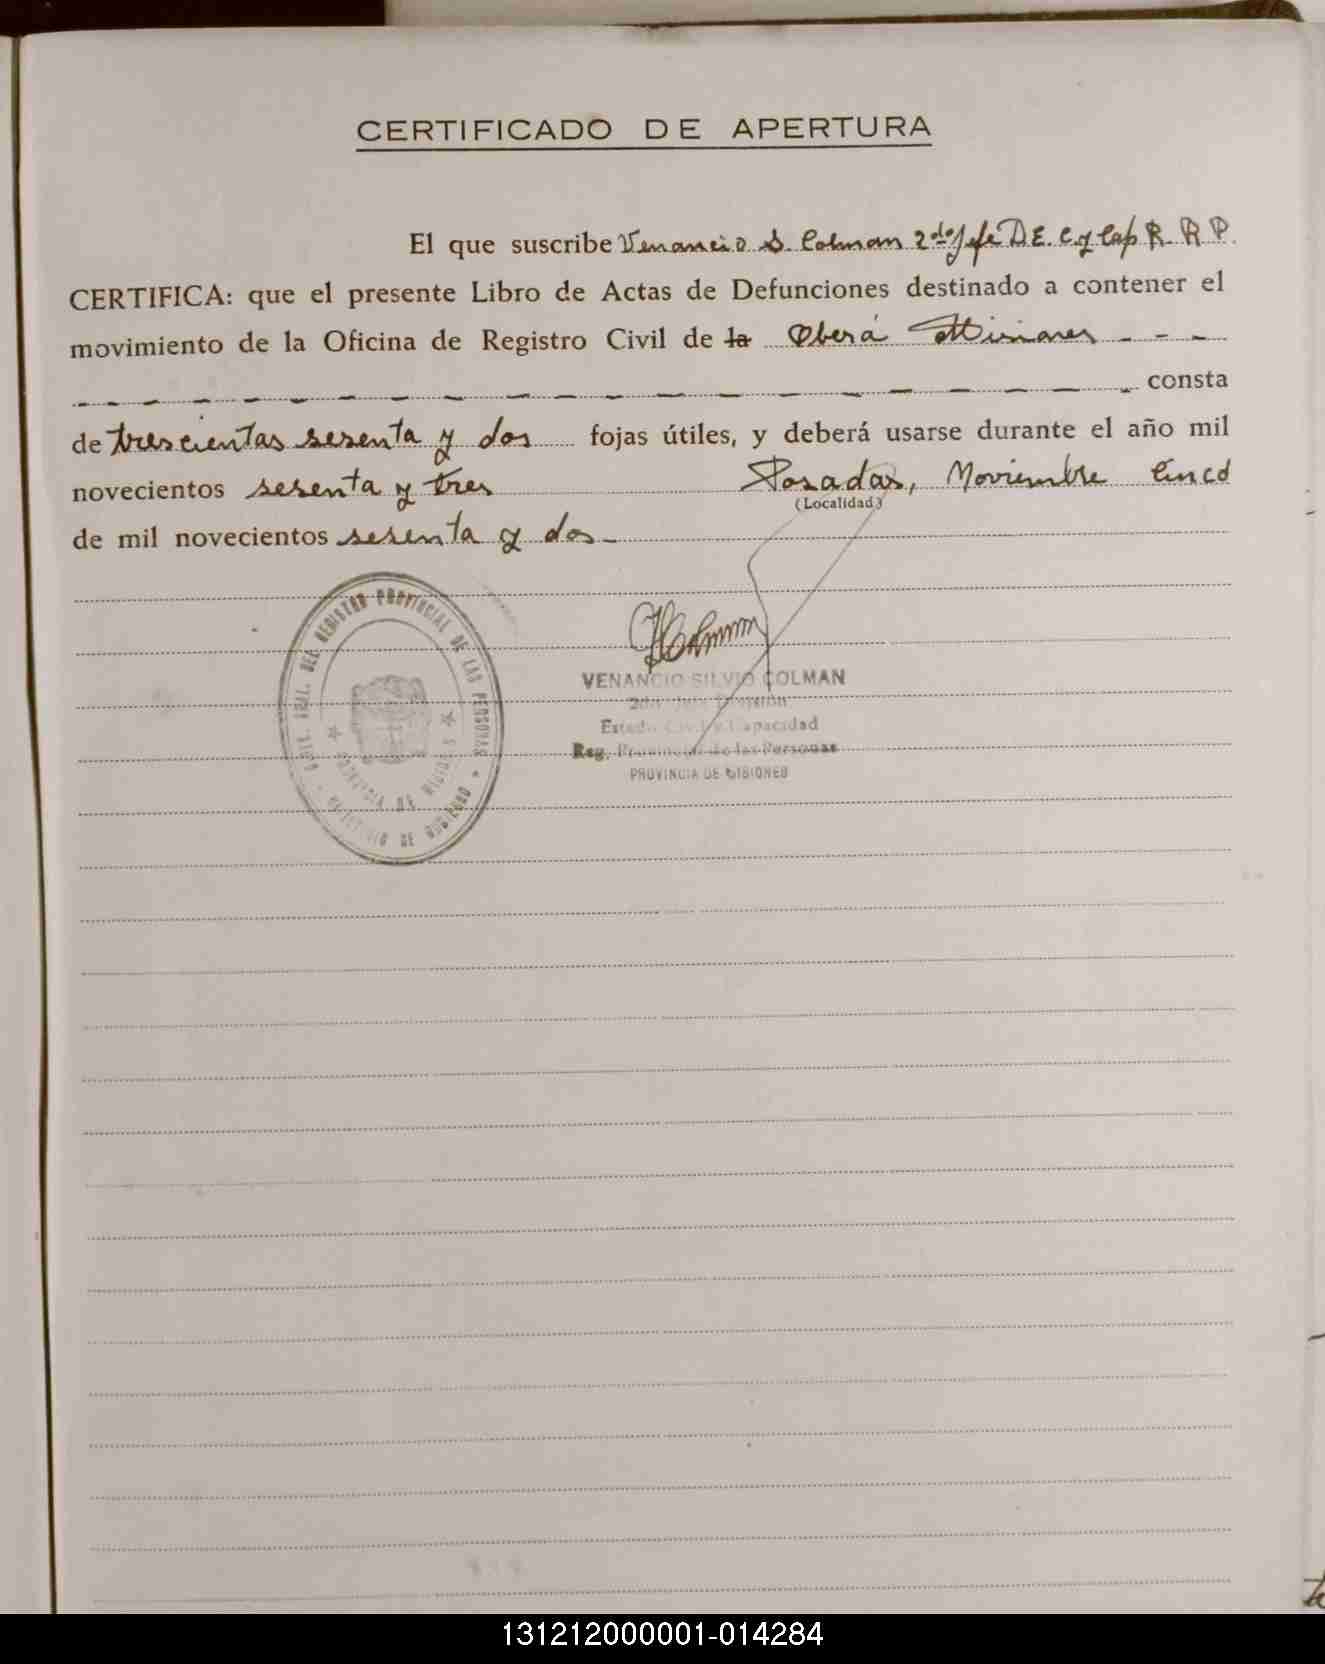 CERTIFICADO DE APERTURA
El que suscribe Venancio S. Colman 2do Jefe D E. C. y Cap R. R P.
CERTIFICA: que el presente Libro de Actas de Defunciones destinado a contener el
movimiento de la Oficina de Registro Civil de la Oberá Misiones - - -
consta
de trescientas sesenta y dos fojas útiles, y deberá usarse durante el año mil
novecientos sesenta y tres Posadas, Noviembre Cinco
(Localidad)
de mil novecientos sesenta y dos -
DEL REGISTRO PROVINCIAL DE LAS PERSONAS
PROVINCIA DE MISIONES
MINISTERIO DE GOBIERNO
VSColman
VENANCIO SILVIO COLMAN
2do. Jefe División
Estado Civil y Capacidad
Reg. Provincial de las Personas
PROVINCIA DE MISIONES
131212000001-014284